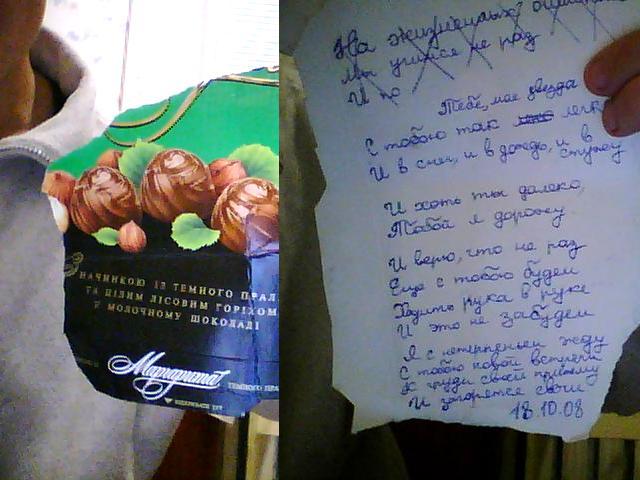 НАЧИНКОЮ ІЗ ТЕМНОГО ПРАЛ
ТА ЦІЛИМ ЛІСОВИМ ГОРІХОМ
У МОЛОЧНОМУ ШОКОЛАДІ
Маргарита
ТЕМНОГО ПРА
На жизненных
Мы учимся не раз
И по
Тебе, моя звезда
С тобою так легк
И в снег, и в дождь, и в стужу
И хоть ты далеко,
Тобой я дорожу
И верю, что не раз
Еще с тобою будем
Ходить рука в руке
И это не забудем
Я с нетерпеньем жду
С тобою новой встречи
К груди своей прижму
И загорятся свечи
18.10.08